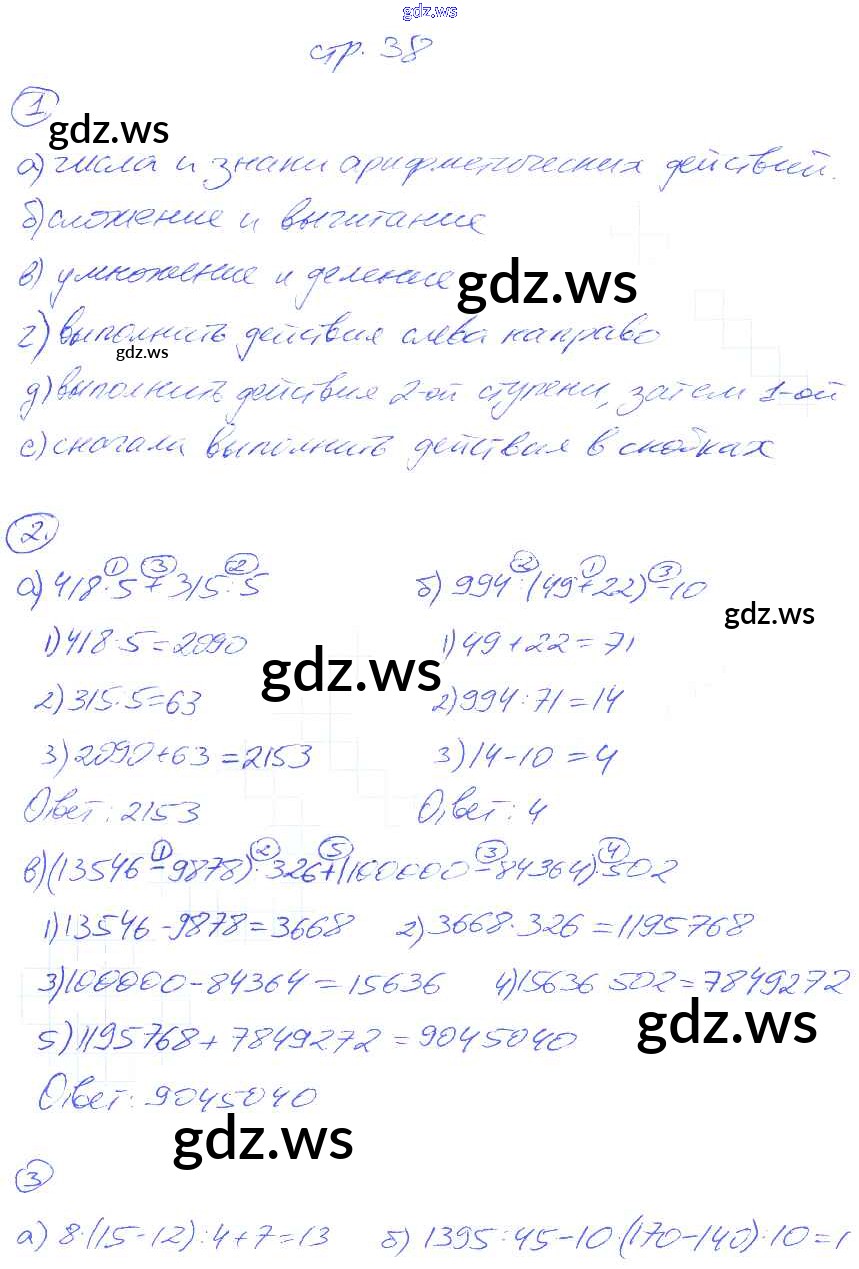 gdz.ws
стр. 38
1
gdz.ws
а) числа и знаки арифметических действий.
б) сложение и вычитание
в) умножение и деление
gdz.ws
г) выполнить действия слева направо
gdz.ws
д) выполнить действия 2-ой ступени, затем 1-ой
е) сначала выполнить действия в скобках
2.
1 3 2
а) 418·5+315:5
2 1 3
б) 994:(49+22)-10
gdz.ws
1) 418·5=2090
1) 49+22=71
gdz.ws
2) 315:5=63
2) 994:71=14
3) 2090+63=2153
3) 14-10=4
Ответ: 2153
Ответ: 4
1 2 5 3 4
в) (13546-9878)·326+(100000-84364)·502
1) 13546-9878=3668 2) 3668·326=1195768
3) 100000-84364=15636 4) 15636 502=7849272
gdz.ws
5) 1195768+7849272=9045040
Ответ: 9045040
gdz.ws
3
а) 8·(15-12):4+7=13 б) 1395:45-10·(170-140):10=1